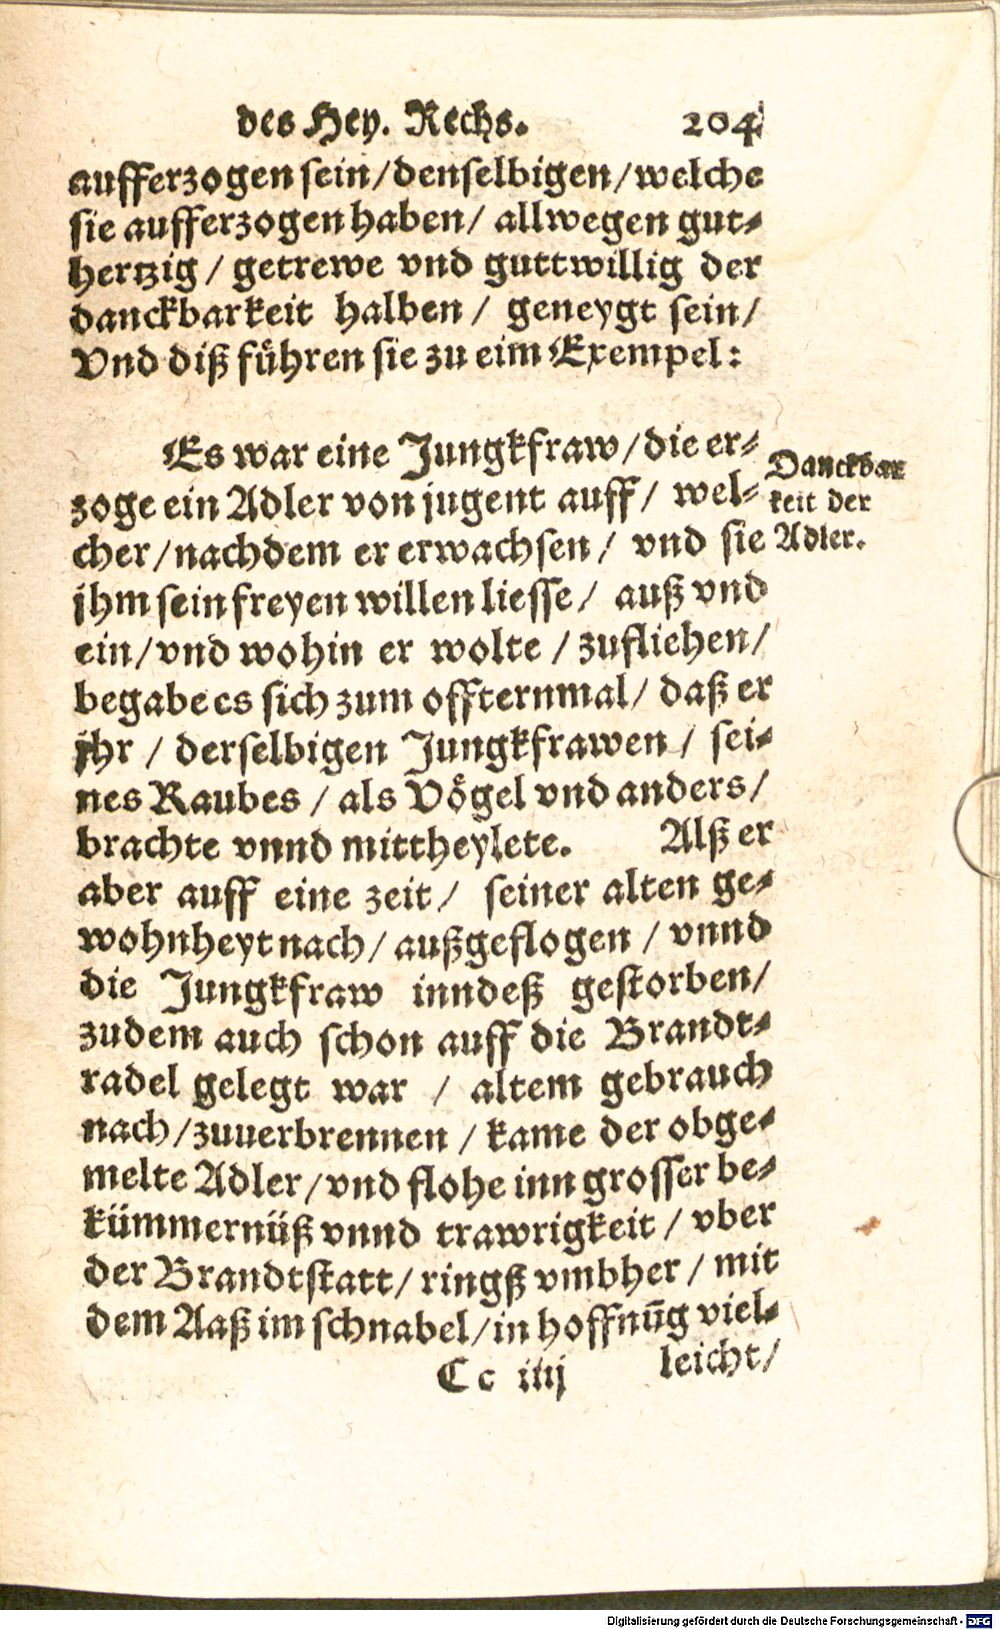 des Hey. Rechs. 204
aufferzogen sein/denselbigen/welche
sie aufferzogen haben/ allwegen gut-
hertzig/ getrewe vnd guttwillig der
danckbarkeit halben/ geneygt sein/
Vnd diß führen sie zu eim Exempel:
Es war eine Jungkfraw/die er-
zoge ein Adler von jugent auff/ wel-
cher/nachdem er erwachsen/ vnd sie
jhm sein freyen willen liesse/ auß vnd
ein/vnd wohin er wolte/zufliehen/
begabe es sich zum offternmal/ daß er
jhr/ derselbigen Jungkfrawen/ sei-
nes Raubes/als Vögel vnd anders/
brachte vnnd mittheylete. Alß er
aber auff eine zeit/ seiner alten ge-
wohnheyt nach/außgeflogen/vnnd
die Jungkfraw inndeß gestorben/
zudem auch schon auff die Brandt-
radel gelegt war/ altem gebrauch
nach/zuuerbrennen/kame der obge-
melte Adler/vnd flohe inn grosser be-
kümmernüß vnnd trawrigkeit/vber
der Brandtstatt/ringß vmbher/mit
dem Aaß im schnabel/in hoffnūg viel-
Cc iiij leicht/
Danckbar
keit der
Adler.
Digitalisierung gefördert durch die Deutsche Forschungsgemeinschaft - DFG